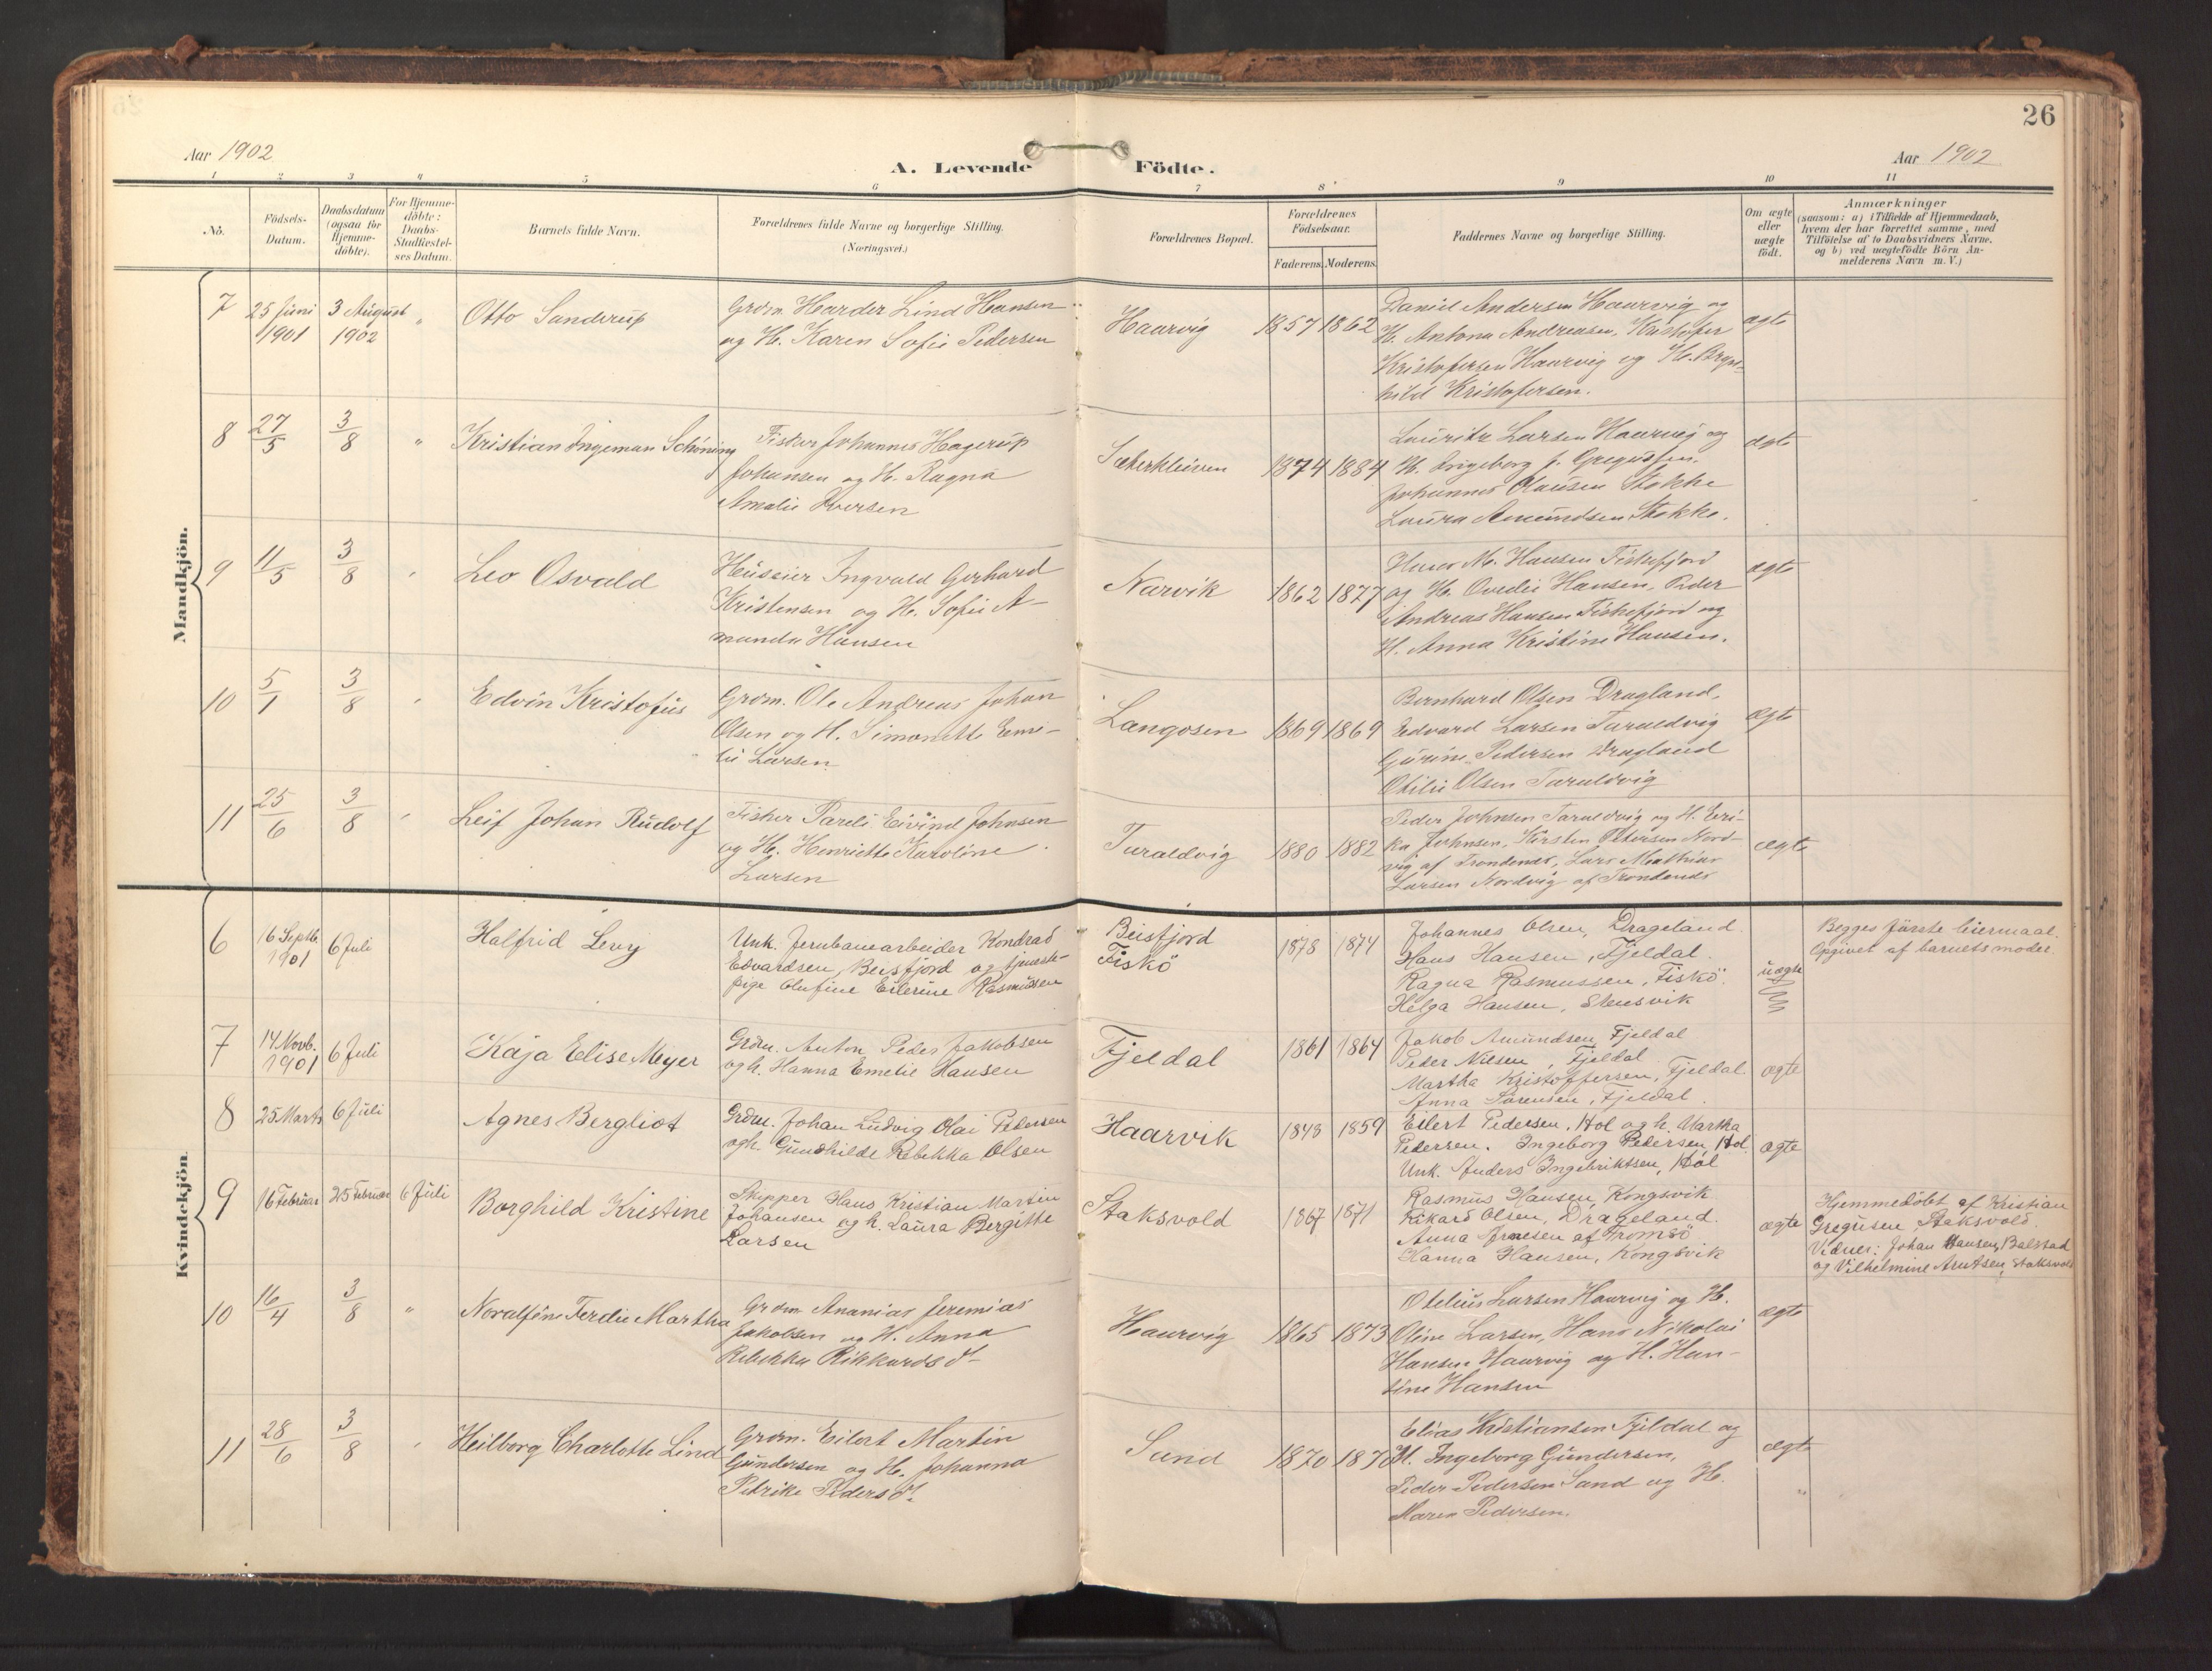 26
Aar 1902
A. Levende Födte.
Aar 1902
1 2 3 4 5 6 7 8 9 10 11
No.
Födsels-
Datum.
Daabsdatum
(ogsaa för
Hjemme-
döbte).
For Hjemme-
döbte:
Daabs-
Stadfæstel-
ses Datum.
Barnets fulde Navn.
Forældrenes fulde Navne og borgerlige Stilling.
(Næringsvei.)
Forældrenes Bopæl.
Forældrenes
Födselsaar.
Faderens. Moderens.
Faddernes Navne og borgerlige Stilling.
Om ægte
eller
uægte
födt.
Anmærkninger
(saasom: a) i Tilfælde af Hjemmedaab,
hvem der har forrettet samme, med
Tilföielse af to Daabsvidners Navne.
og b) ved uægtefödte Börn An-
melderens Navn m. V.)
Mandkjön.
7
25 Juni
1901
3 August
1902
"
Otto Sanderup
Grdm. Harder Lind Hansen
og H. Karen Sofie Pedersen
Haarvig
1857 1862
Daniel Andersen Haarvig og
H. Antona Andreasen, Kristofer
Kristofersen Haarvig og H. Bryn-
hild Kristofersen.
ægte
8
27/5
3/8
"
Kristian Ingeman Schöning
Fisker Johannes Hagerup
Johansen og H. Ragna
Amalie Iversen
1874 1884
Lauritz Larsen Haarvig og
H. Ingeborg f. Gregussen.
Johannes Olausen Stokke
Laura Amundsen Stokke.
ægte
9
11/5
3/8
"
Leo Osvald
Husseier Ingvald Gerhard
Kristensen og H. Sofie A-
manda Hansen
Narvik
1862 1877
M. Hansen Fiskefjord
og H. Ovedie Hansen, Peder
Andreas Hansen Fiskefjord og
H. Anna Kristine Hansen.
ægte
10
5/1
3/8
"
Edvin Kristofus
Grdm. Ole Andreas Johan
Olsen og H. Simonette Emi-
lie Larsen
Langosen
1869 1869
Bernhard Olsen Dragland,
Edvard Larsen Taraldvig
Gurine Pedersen Dragland
Otilie Olsen Taraldvig
ægte
11
25/6
3/8
"
Leif Johan Rudolf
Fisker Pareli Eivind Johnsen
og H. Henriette Karoline
Larsen
Taraldvig
1880 1882
Peder Johnsen Taraldvig og H. Eri-
ka Johnsen, Kirsten Petersen Nord-
vig af Trondenes, Lars Mathias
Larsen Nordvig af Trondenes
ægte
Kvindekjön.
6
16 Septb.
1901
6 Juli
Halfrid Levy
Unk. Jernbanearbeider Kondrad
Edvardsen, Beisfjord og tjeneste-
pige Olufine Eilerine Rasmussen
Beisfjord
Fiskö
1878 1874
Johannes Olsen, Drageland.
Hans Hansen, Fjeldal.
Ragna Rasmussen, Fiskö.
Helga Hansen, Stensvik
uægte
Begges förste leiermaal.
Opgivet af barnets moder.
7
14 Novb.
1901
6 Juli
Kaja Elise Meyer
Grdm. Anton Peder Jakobsen
og h. Hanna Emelie Hansen
Fjeldal
1861 1864
Jakob Amundsen, Fjeldal
Peder Nilsen, Fjeldal
Martha Kristoffersen, Fjeldal.
Anna Sörensen, Fjeldal.
ægte
8
25 Marts
6 Juli
Agnes Bergliot
Grdm. Johan Ludvig Olai Pedersen
og h. Gunhilde Rebekka Olsen
Haarvik
1848 1859
Eilert Pedersen, Hol og h. Martha
Pedersen. Ingeborg Pedersen, Hol.
Unk. Anders Ingebriktsen, Hol
ægte
9
16 Februar
25 Februar
6 Juli
Borghild Kristine
Skipper Hans Kristian Martin
Johansen og h. Laura Bergitte
Larsen
Staksvold
1867 1871
Rasmus Hansen, Kongsvik
Rikard Olsen, Drageland.
Anna Arnesen af Tromsö
Hanna Hansen, Kongsvik
ægte
Hjemmedöbt af Kristian
Gregusen, Staksvold.
Vidner: Johan Hansen, Balstad
og Vilhelmine Arntsen, Staksvold
10
16/4
3/8
"
Noralfine Ferdie Martha
Grdm Ananias Jeremias
Jakobsen og H. Anna
Rebekka Rikkardsdt
Haarvig
1865 1873
Otelius Larsen Haarvig og H.
Oline Larsen, Hans Nikolai
Hansen Haarvig og H. Han-
sine Hansen
ægte
11
28/6
3/8
"
Heilborg Charlotte Lind
Grdm. Eilert Martin
Gundersen og H. Johanna
Petrike Pedersdt.
Sand
1870 1870
Elias Kristiansen Fjeldal og
H. Ingeborg Gundersen,
Peder Pedersen Sand og H.
Maren Pedersen.
ægte
"